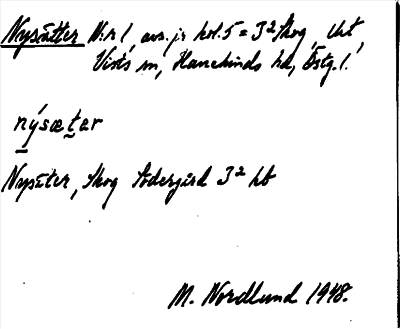 Nysätter N:r 1, avs. jr kol. 5 = 3² Skog, Uht
Vists sn, Hanekinds hd, Östg. l.
nýsætər
Nysäter, Skog Södergård 3² ht
M. Nordlund 1948.